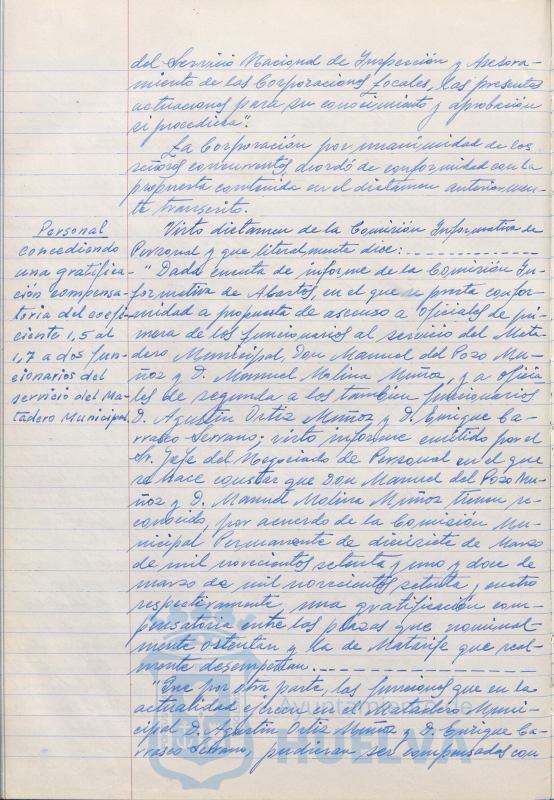 del Servicio Nacional de Inspección y Asesora-
miento de las Corporaciones Locales, las presentes
actuaciones para su conocimiento y aprobación
si procediera".
La Corporación por unanimidad de los
señores concurrentes, acordó de conformidad con la
propuesta contenida en el dictamen anteriormen-
te transcrito.
Personal
concediendo
una gratifica-
ción compensa-
toria del coefi-
ciente 1,5 al
1,7 a dos fun-
cionarios del
servicio del Ma-
tadero Municipal
Visto dictamen de la Comisión Informativa de
Personal y que literalmente dice:
"Dada cuenta de informe de la Comisión In-
formativa de Abastos, en el que se presta confor-
midad a propuesta de ascenso a oficiales de pri-
mera de los funcionarios al servicio del Mata-
dero Municipal, Don Manuel del Pozo Mu-
ñoz y D. Manuel Molina Muñoz, y a oficia-
les de segunda a los tambien funcionarios
D. Agustín Ortiz Muñoz y D. Enrique Ca-
rrasco Serrano; visto informe emitido por el
Sr. Jefe del Negociado de Personal en el que
se hace constar que Don Manuel del Pozo Mu-
ñoz y D. Manuel Molina Muñoz tienen re-
conocido, por acuerdo de la Comisión Mu-
nicipal Permanente de diecisiete de Marzo
de mil novecientos setenta y uno y doce de
marzo de mil novecientos setenta y cuatro
respectivamente, una gratificación com-
pensatoria entre las plazas que nominal-
mente ostentan y la de Matarife que real-
mente desempeñan.
"Que por otra parte, las funciones que en la
actualidad ejercen en el Matadero Munici-
cipal D. Agustín Ortiz Muñoz y D. Enrique Ca-
rrasco Serrano, pudieran ser compensados con
Ayuntamiento de
HUELVA